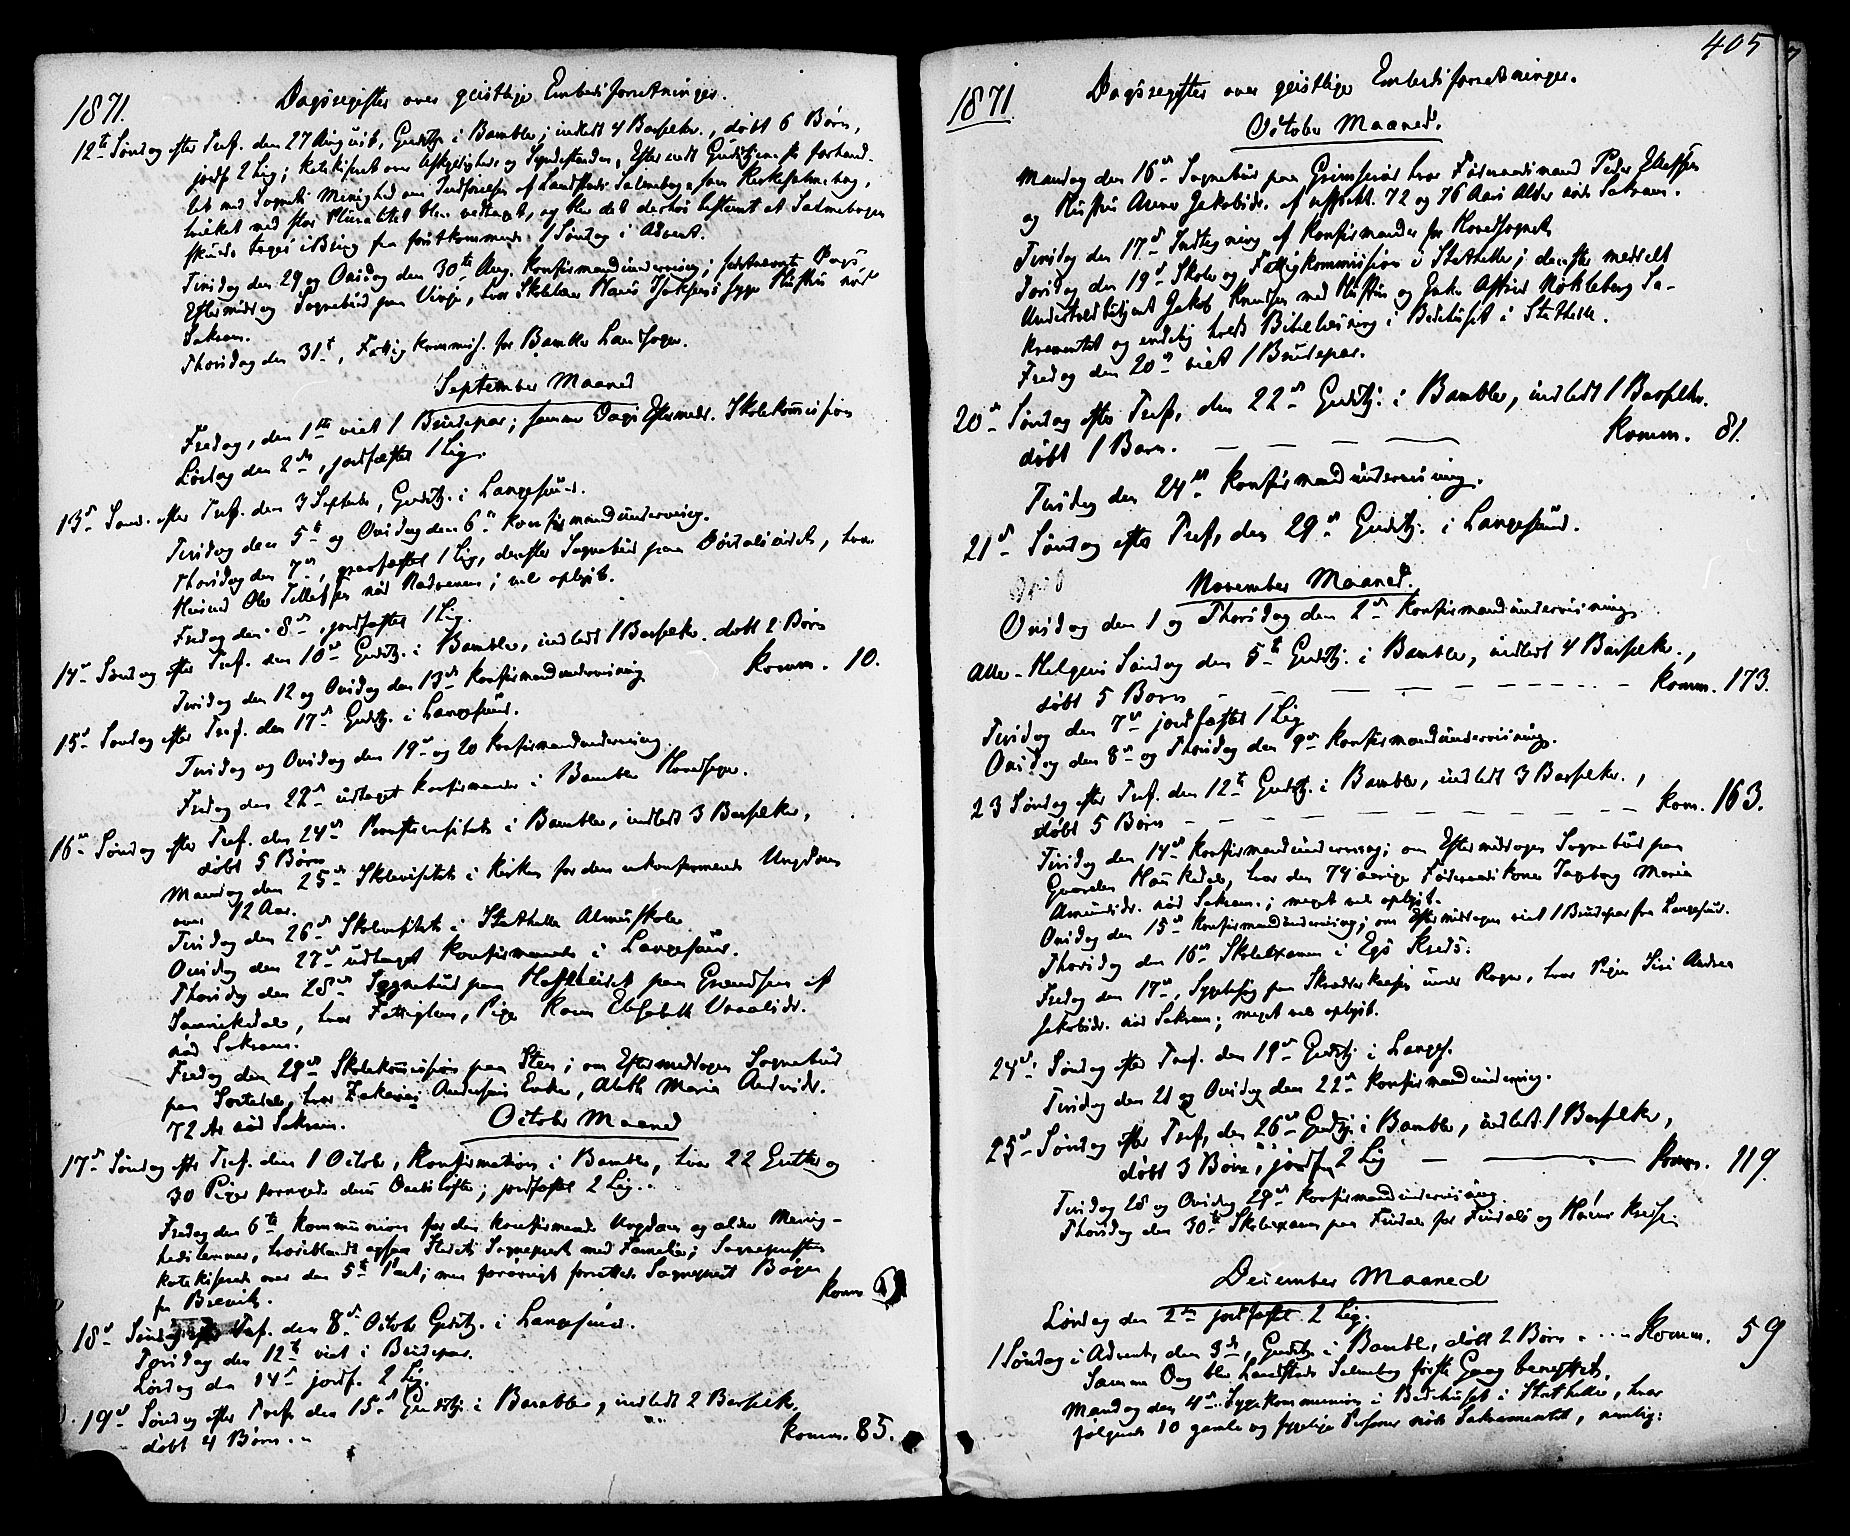 1871.
Dagsregister over geistlige Embedsforretninger.
12te Søndag efter Tref. den 27 August, Gudstj. i Bamble; indledt 4 Barselkv., døbt 6 Børn,
jordf. 2 Lig; katekiseret over Uskyldighets og Syndestanden. Efter endt Gudstjeneste forhand-
let med Sognets Menighed om Indførelsen af Landstads Salmebog som Kirkesalmebog,
hvilket med stor Pluralitet blev vedtaget, og blev det derhos bestemt at Salmebogen
skulde tages i Brug fra førstkommende 1 Søndag i Advent.
Tirsdag den 29 og Onsdag den 30te Aug. Konfirmandundervisning; sidstnævnte Dags
Eftermiddag Sognebud paa Vinje, hvor Skolelærer Hans Isaksens syge Hustru nød
Sakram.
Thorsdag den 31t, Fattigkommis. for Bamble Landsogn.
September Maaned
Fredag, den 1te viet 1 Brudepar; samme Dags Eftermidd. Skolekommission
Lørdag den 2den, jordfæstet 1 Lig.
13d Sønd. efter Tref. den 3 Septbr, Gudstj. i Langesund.
Tirsdag den 5te og Onsdag den 6te Konfirmandundervisning.
Thorsdag den 7de, jordfæstet 1 Lig, derefter Sognebud paa, hvor
Husmd Ole Tellefsen nød Nadveren; vel oplyst.
Fredag den 8d, jordfæstet 1 Lig.
14d Søndag efter Tref. den 10d Gudstj. i Bamble, indledt 1 Barselkv. døbt 2 Børn
Komm. 10.
Tirsdag den 12 og Onsdag den 13d Konfirmandundervisning
15d Søndag efter Tref. den 17d Gudstj. i Langesund.
Tirsdag og Onsdag den 19d og 20 Konfirmandundervisning.
Fredag den 22d udtaget Konfirmander i Bamble Hovedsogn.
16d Søndag efter Tref. den 24d Provstevisitats i Bamble, indledt 3 Barselkv.,
døbt 5 Børn
Mandag den 25d Skolevisitats i Kirken for den ukonfirmerede Ungdom
over 12 Aar.
Tirsdag den 26d Skolevisitats i Stathelle Almuskole
Onsdag den 27d udtaget Konfirmander i Langesund.
Thorsdag den 28d Sognebud paa paa Grændsen af
Sannikedal, hvor Fattiglem, Pige Karen Elisabeth
nød Sakram.
Fredag den 29d Skolekommission paa Sten; om Eftermiddagen Sognebud
paa, hvor Zakarias Andersens Enke, Aleth Maria Andersdr.
72 Ar nød Sakram.
October Maaned
17d Søndag efter Tref. den 1 October, Konfirmation i Bamble, hvor 22 Gutter og
30 Piger fornyede deres Daabsløfte; jordfæstet 2 Lig.
Fredag den 6te Kommunion for den konfirmerede Ungdom og ældre Menig-
hedslemmer, hvoriblandt ogsaa Stedets Sognepræst med Familie; Sognepresten
katekiserede over den 5te Part; men forøvrigt forrettede Sognepræst Bøgen
fra Brevik.
Komm
18d Søndag efter Tref. den 8d October Gudstj. i Langesund.
Torsdag den 12te viet 1 Brudepar.
Lørdag den 14d jordf. 2 Lig.
19d Søndag efter Tref. den 15d Gudstj. i Bamble, indledt 2 Barselkv.
døbt 4 Børn.
Komm. 85.
405
1871
Dagsregister over geistlige Embedsforretninger.
October Maaned.
Mandag den 16d Sognebud paa Grimsrød hvor Føderaadsmand Peder Ellefsen
og Hustru Maren Jakobsdr. af respektl. 72 og 76 Aars Alder nød Sakram.
Tirsdag den 17d Indtegning af Konfirmander for Hovedsognet
Torsdag den 19d Skole og Fattigkommission i Stathelle; derefter meddelt
Jakob Knudsen med Hustru og Enke Sa-
kramentet og endelig holdt Bibellæsning i Bedehuset i Stathelle.
Fredag den 20d viet 1 Brudepar.
20d Søndag efter Tref. den 22d Gudstj. i Bamble, indledt 1 Barselkv.
døbt 1 Barn. — — — — Komm. 81.
Tirsdag den 24d Konfirmandundervisning.
21d Søndag efter Tref, den 29d Gudstj. i Langesund.
November Maaned.
Onsdag den 1 og Thorsdag den 2d Konfirmandundervisning
Alle-Helgens Søndag den 5te Gudstj. i Bamble, indledt 4 Barselkv.,
døbt 5 Børn — — — — Komm. 173.
Tirsdag den 7d jordfæstet 1 Lig
Onsdag den 8d og Thorsdag den 9d Konfirmandundervisning.
23 Søndag efter Tref. den 12te Gudstj. i Bamble, indledt 3 Barselkv.,
døbt 5 Børn — — — — Kom. 163.
Tirsdag den 14d Konfirmandundervisng; om Eftermiddagen Sognebud paa
Gaarden, hvor den 74 aarige Føderaadskone Ingeborg Maria
Amundsdr. nød Sakram.; meget vel oplyst.
Onsdag den 15d Konfirmandundervisng; om Eftermiddagen viet 1 Brudepar fra Langesund.
Thorsdag den 16d Skolexamen i Egs Kreds.
Fredag den 17d, Sygebesøg paa under Rogn, hvor Pigen Siri Andrea
Jakobsdr. nød Sakram; meget vel oplyst.
24d Søndag efter Tref. den 19d Gudstj. i Langes.
Tirsdag den 21 og Onsdag den 22d Konfirmandunderving.
25d Søndag efter Tref, den 26d Gudstj. i Bamble, indledt 1 Barselkv,
døbt 3 Børn, jordf. 2 Lig — — Komm. 119.
Tirsdag 28 og Onsdag 29d Konfirmandundervisning.
Thorsdag den 30te Skolexamen paa Findal for Findals og Kredse.
December Maaned
Lørdag den 2den jordfæstet 2 Lig.
1 Søndag i Advent, den 3d, Gudstj. i Bamble, døbt 2 Børn . . . . Komm. 59
Samme Dag blev Landstads Salmebog første Gang benyttet.
Mandag den 4d Sygekommunion i Bedehuset i Stathelle, hvor
følgende 10 gamle og sygelige Personer nød Sakramentet, nemlig: